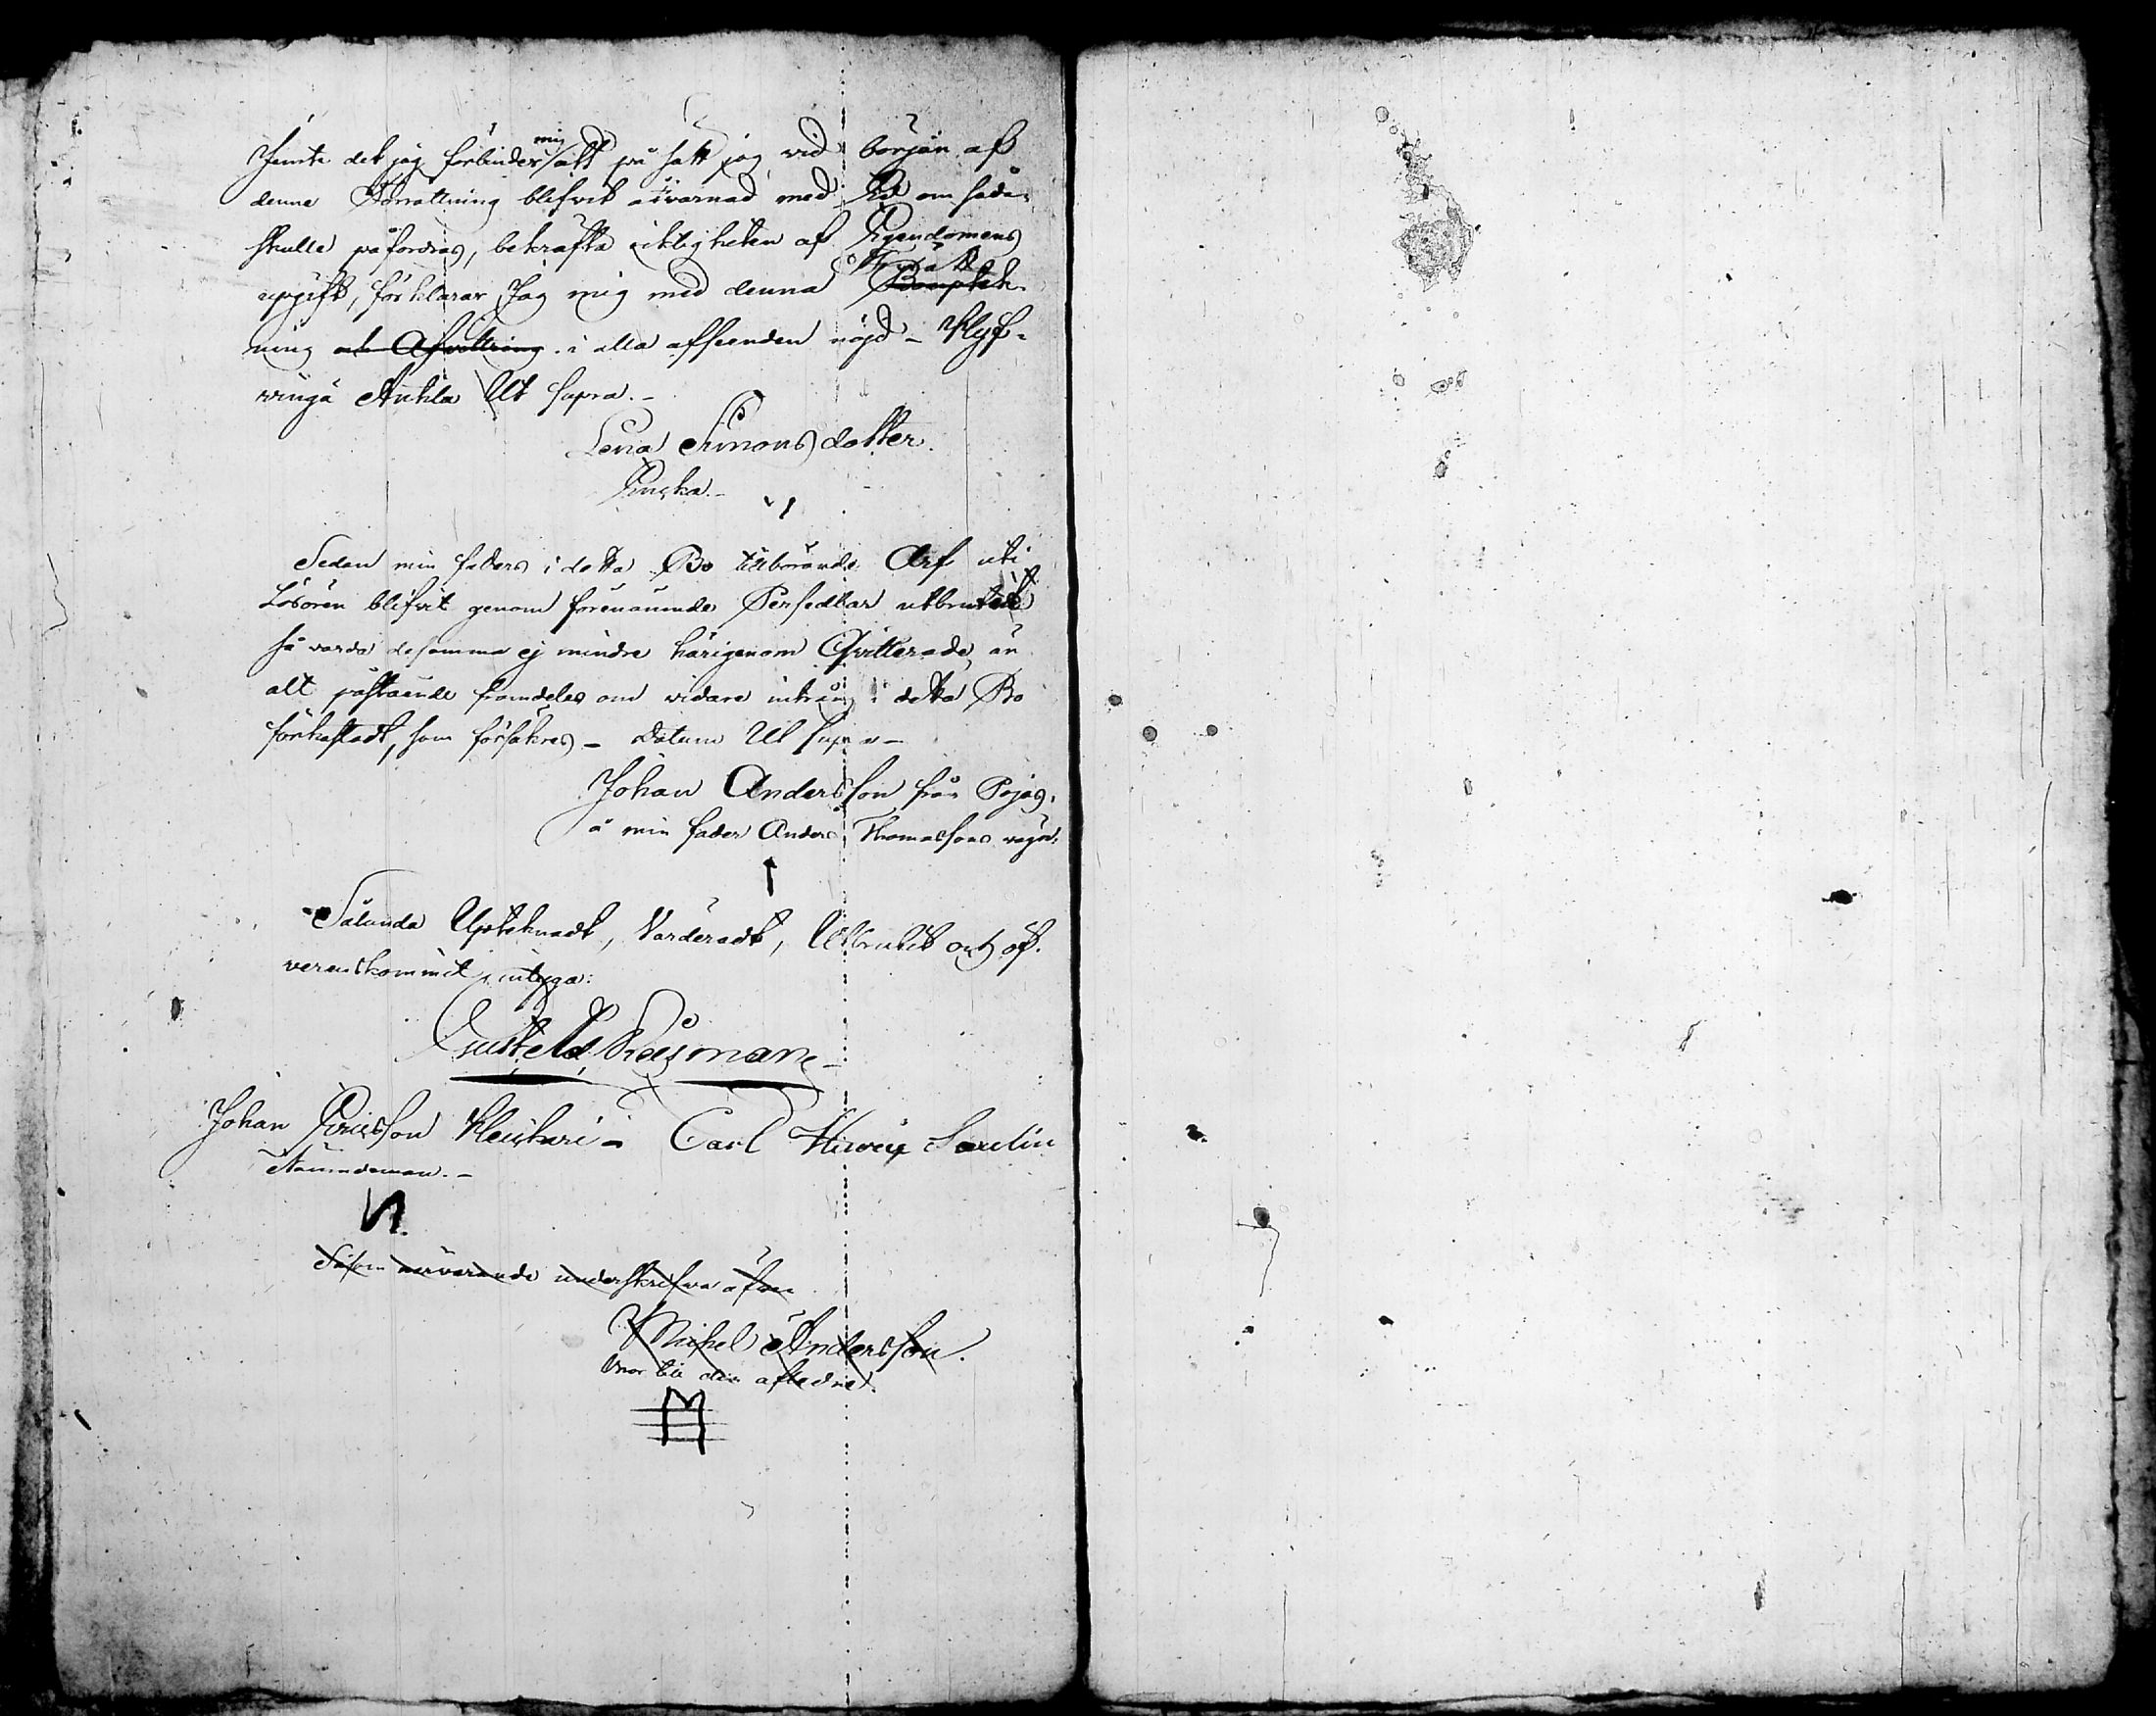 Jemte det jag förbinder mig att på satt jag vid början af
denna Förrättning blifvit åtvarnad med Ed om sådı
skulle påfordras, bekräfta riktigheten af Egendomens
uppgift, förklarar Jag mig med denna Förrätt Bouptek-
ning och Afvittring i alla afseenden nöjd - Klyf-
vingä Ankla Ut supra. -
Lena Simonsdotter
Enka. -
Sedan min faders i detta Bo tillhörande Arf uti
Lösören blifvit genom förenämnde Persedlar utbrutit
så varda desamma ej mindre härigenom Qvitterade, än
alt påstaende framdeles om vidare intrång i detta Bo
förkastadt, som försäkras - Datum Ut supra -
Johan Andersson från Pojas,
å min fader Anders Thomassons vagnar
Sålunda Uptecknadt, Värderadt, Utbrutit och öf-
verenskommit, intyga:
Gust: Ad: Reijman
Johan Ericsson Kleiskari - Carl Saulin
Nämndeman. -
Såsom närvarande underskrifva äfven
Michel Andersson.
Mor till den aflednе.